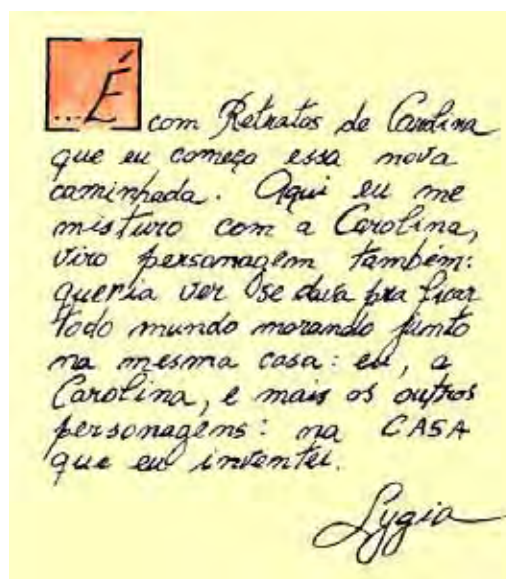 ...É
com Retratos de Carolina
que eu começo essa nova
caminhada. Aqui eu me
misturo com a Carolina,
viro personagem também:
queria ver se dava pra ficar
todo mundo morando junto
na mesma casa: eu, a
Carolina, e mais os outros
personagens: na CASA
que eu inventei.
Lygia